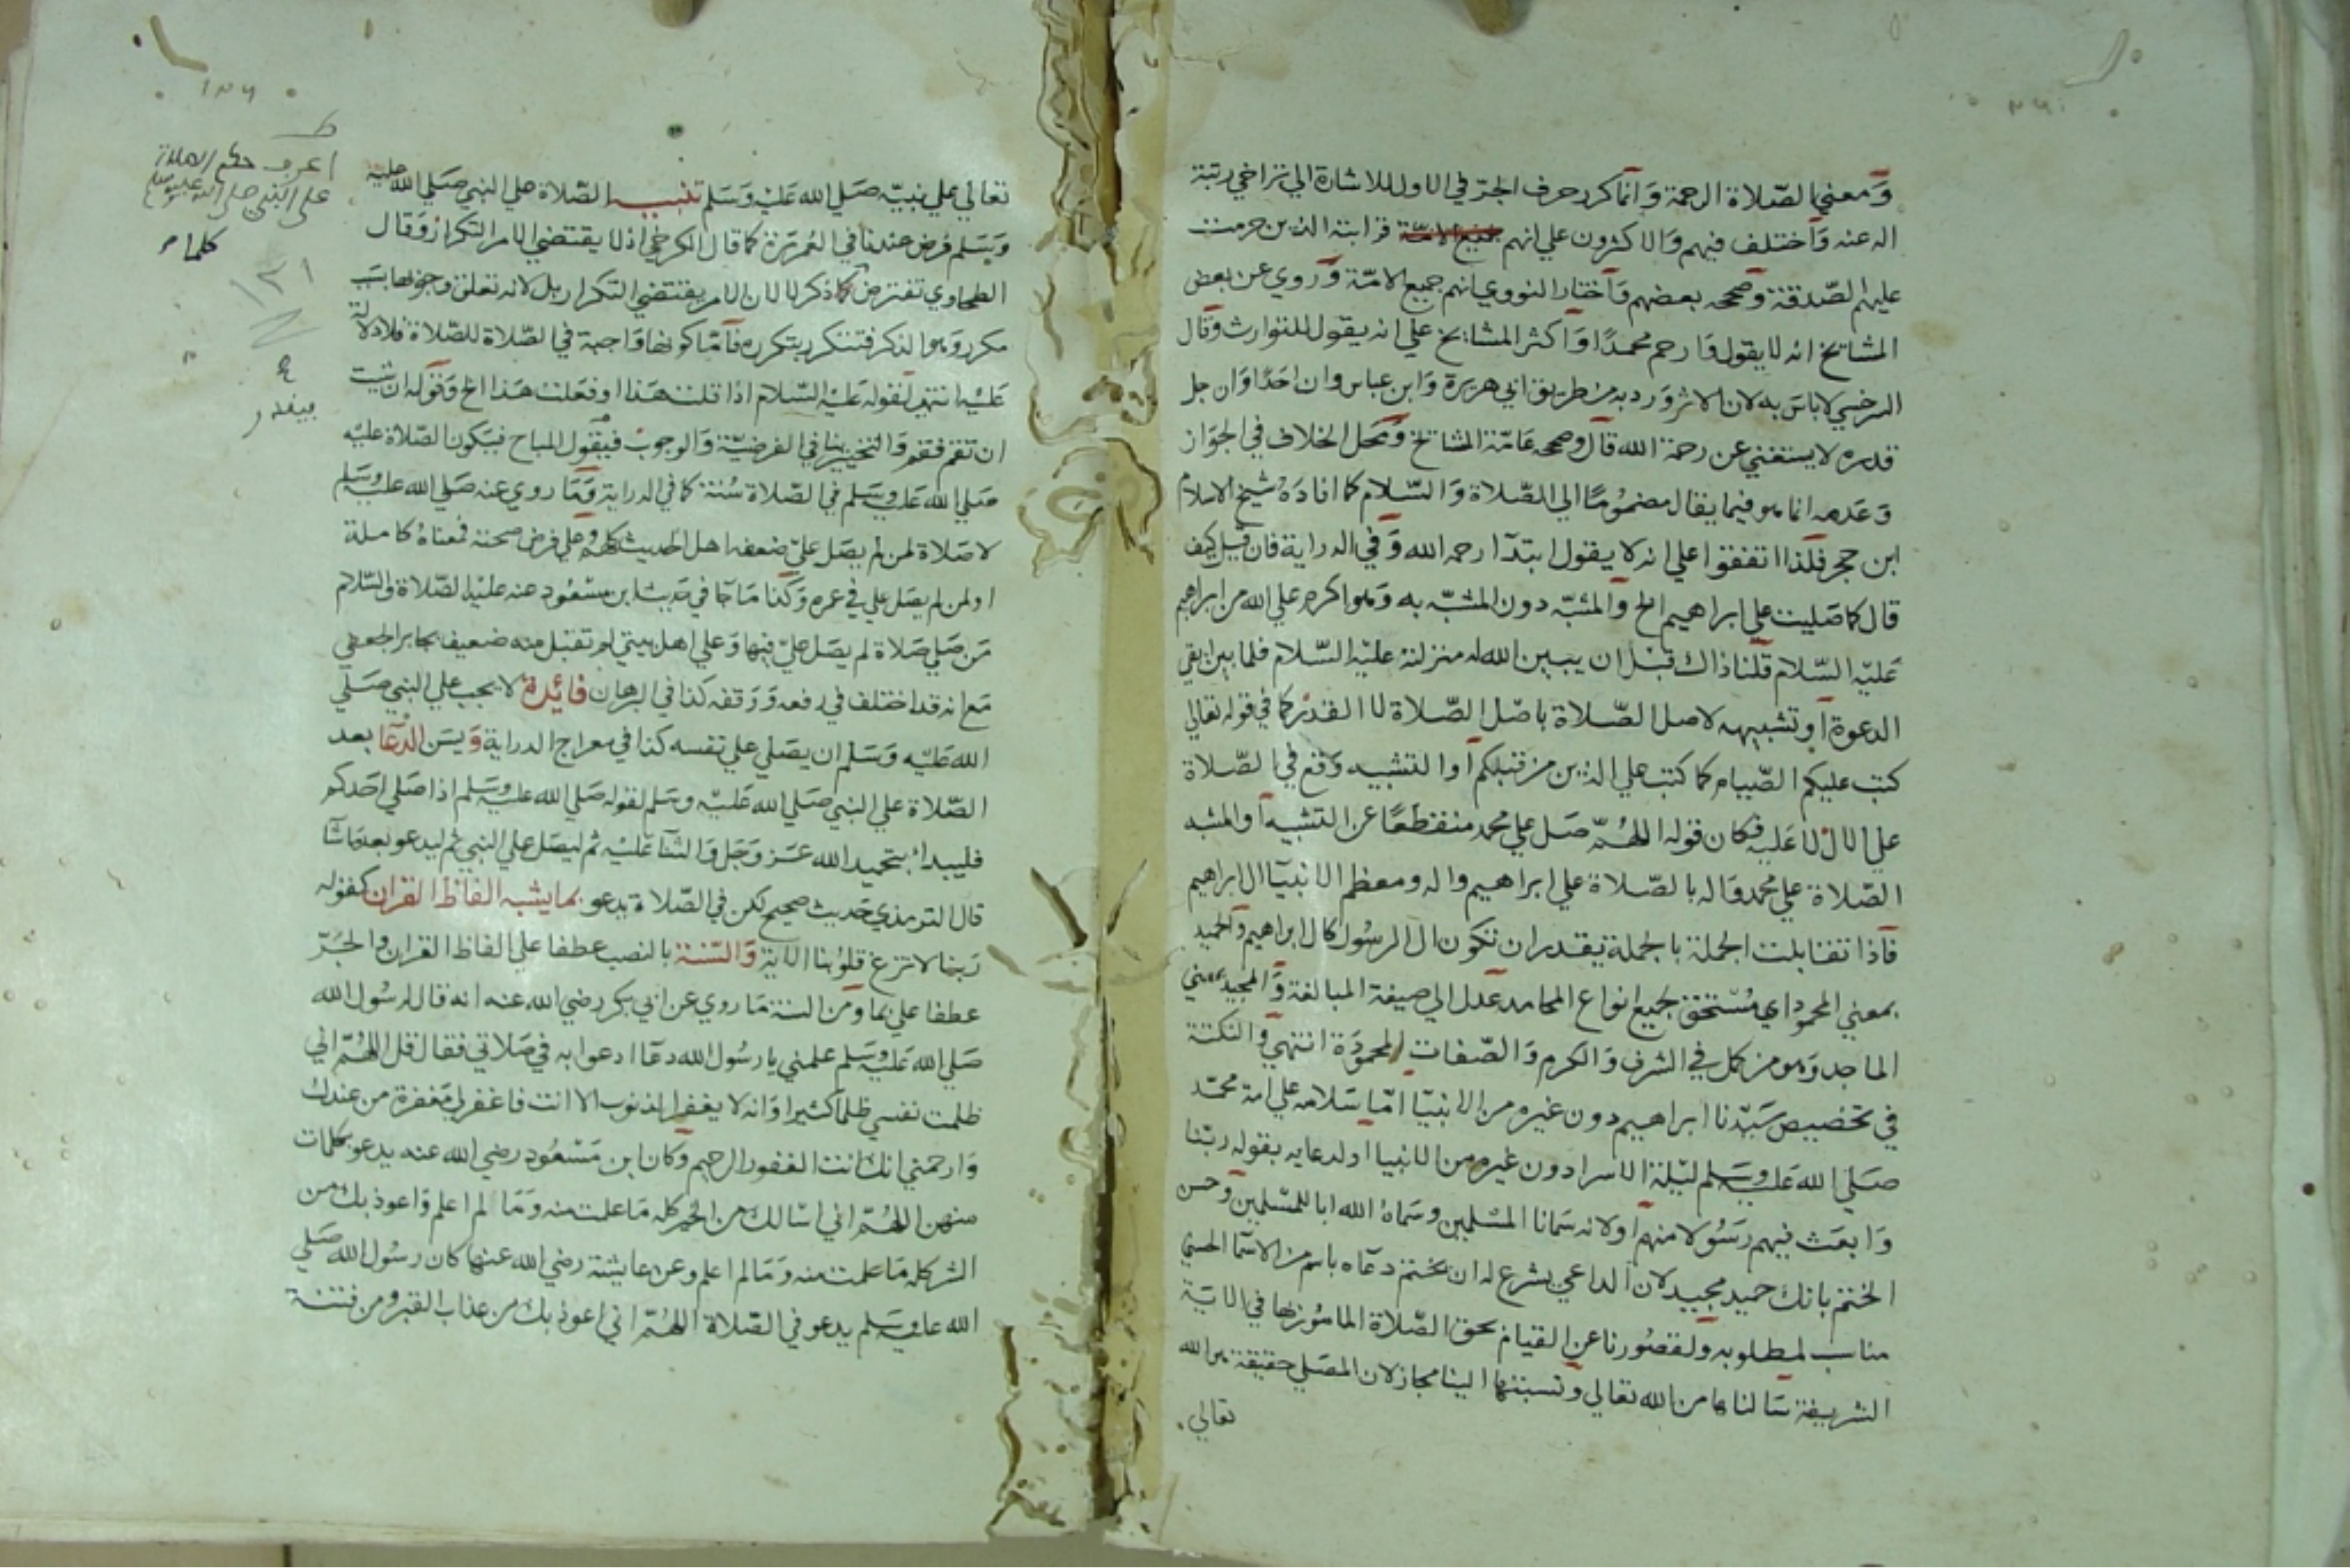 ومعني الصلاة الرحمة وانما كرر حرف الجر في الاول للاشارة الي تراخي رتبة
اله عنه واختلف فيهم والاكثرون علي انهم قرابته الذين حرمت
عليهم الصدقة وصححه بعضهم واختار النووي انهم جميع الامة وروي عن بعض
المشايخ انه لا يقول وارحم محمدا واكثر المشايخ علي انه يقول للتوارث وقال
السرخسي لا باس به لان الاثر ورد به من طريق ابي هريرة وابن عباس وان احدا وان جل
قدره لا يستغني عن رحمة الله قال وصححه عامة المشايخ ومحل الخلاف في الجواز
وعدمه انما هو فيما يقال مضموما الي الصلاة والسلام كما افاده شيخ الاسلام
ابن حجر فلذا اتفقوا علي انه لا يقول ابتدآ رحمه الله وفي الدراية فان قيل كيف
قال كما صليت علي ابراهيم الخ والمشبه دون المشبه به وهو اكرم علي الله من ابراهيم
عليه السلام قلنا ذاك قبل ان يبين الله له منزلته عليه السلام فلما بين ابقي
الدعوة او تشبيه لاصل الصلاة باصل الصلاة لا القدر كما في قوله تعالي
كتب عليكم الصيام كما كتب علي الذين من قبلكم او التشبيه وقع في الصلاة
علي الال لا عليه فكان قوله اللهم صل علي محمد منقطعا عن التشبيه او المشبه
الصلاة علي محمد واله بالصلاة علي ابراهيم واله ومعظم الانبيآ ال ابراهيم
فاذا تقابلت الجملة بالجملة يقدر ان تكون ال الرسول كال ابراهيم والحميد
بمعني المحمود اي مستحق لجميع انواع المحامد عدل الي صيغة المبالغة والمجيد بمعني
الماجد وهو من كمل في الشرف والكرم والصفات المحمودة انتهي والنكتة
في تخصيص سيدنا ابراهيم دون غيره من الانبيا اما سلامه علي امة محمد
صلي الله عليه وسلم ليلة الاسرا دون غيره من الانبيا او لدعايه بقوله ربنا
وابعث فيهم رسولا منهم او لانه سمانا المسلمين وسماه الله ابا للمسلمين وحسن
الختم بانك حميد مجيد لان الداعي يشرع له ان يختم دعآه باسم من الاسما الحسني
مناسب لمطلوبه ولقصورنا عن القيام بحق الصلاة المامور بها في الاية
الشريفة سالناها من الله تعالي ونسبتها الينا مجاز لان المصلي حقيقة هو الله
تعالي
تعالي علي نبيه صلي الله عليه وسلم تنبيه الصلاة علي النبي صلي الله عليه
وسلم فرض عندنا في العمر مرة كما قال الكرخي اذ لا يقتضي الامر التكرار وقال
الطحاوي تفترض كلما ذكر لا لان الامر يقتضي التكرار بل لانه تعلق وجوبها بسبب
مكرر وهو الذكر فتتكرر بتكرره فاما كونها واجبة في الصلاة للصلاة فلا دلالة
عليه انتهي لقوله عليه السلام اذا قلت هذا او فعلت هذا الخ وقوله ان شيت
ان تقم فقم والتخيير ينافي الفرضية والوجوب فيقول المباح فيكون الصلاة عليه
صلي الله عليه وسلم في الصلاة سنة كما في الدراية وما روي عنه صلي الله عليه وسلم
لا صلاة لمن لم يصل علي ضعفه اهل الحديث كلهم وعلي فرض صحته فمعناه كاملة
او لمن لم يصل علي في عمره وكذا ما جآ في حديث ابن مسعود عنه عليه الصلاة والسلام
من صلي صلاة لم يصل علي فيها وعلي اهل بيتي لم تقبل منه ضعيف بجابر الجعفي
مع انه قد اختلف في رفعه ووقفه كذا في البرهان فائدة لا يجب علي النبي صلي
الله عليه وسلم ان يصلي علي نفسه كذا في معراج الدراية ويسن الدعا بعد
الصلاة علي النبي صلي الله عليه وسلم لقوله صلي الله عليه وسلم اذا صلي احدكم
فليبدا بتحميد الله عز وجل والثنآ عليه ثم ليصل علي النبي ثم ليدعو بعد ما شآ
قال الترمذي حديث صحيح لكن في الصلاة يدعو بما يشبه الفاظ القران كقوله
ربنا لا تزغ قلوبنا الاية والسنة بالنصب عطفا علي الفاظ القران والجر
عطفا علي بما ومن السنة ما روي عن ابي بكر رضي الله عنه انه قال لرسول الله
صلي الله عليه وسلم علمني يا رسول الله دعآ ادعوا به في صلاتي فقال قل اللهم اني
ظلمت نفسي ظلما كثيرا وانه لا يغفر الذنوب الا انت فاغفر لي مغفرة من عندك
وارحمني انك انت الغفور الرحيم وكان ابن مسعود رضي الله عنه يدعو بكلمات
منهن اللهم اني اسالك من الخير كله ما علمت منه وما لم اعلم واعوذ بك من
الشر كله ما علمت منه وما لم اعلم وعن عايشة رضي الله عنها كان رسول الله صلي
الله عليه وسلم يدعو في الصلاة اللهم اني اعوذ بك من عذاب القبر ومن فتنة
اعرف حكم الصلاة
علي النبي صلي الله عليه وسلم
كلما
١٣١